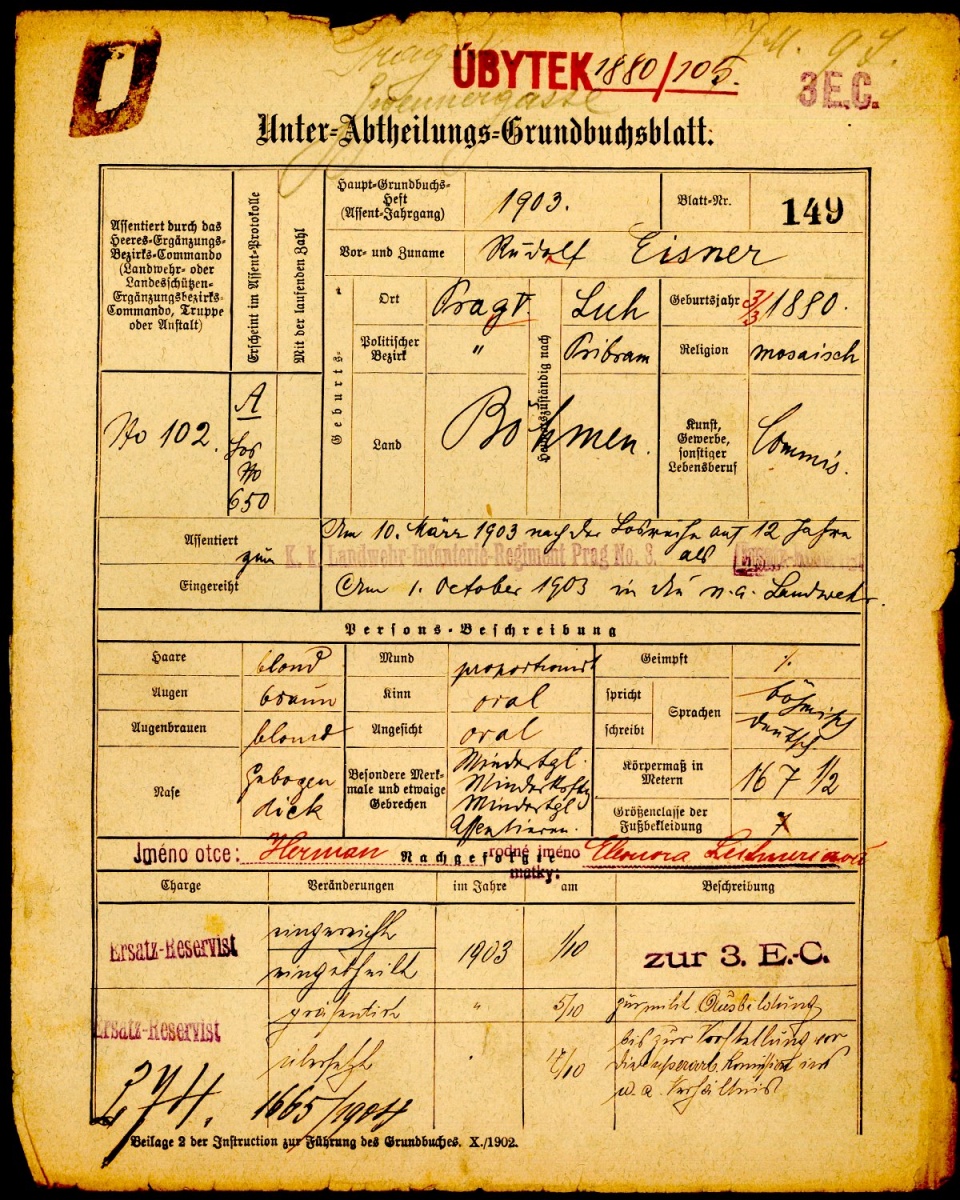 Prag
ÚBYTEK 1880/105.
3 E.C.
Unter-Abtheilungs-Grundbuchsblatt.
Assentiert durch das Heeres-Ergänzungs-Bezirks-Commando (Landwehr- oder Landesschützen-Ergänzungsbezirks-Commando, Truppe oder Anstalt)
Erscheint im Assent-Protokolle
Mit der laufenden Zahl
Haupt-Grundbuchs-Heft (Assent-Jahrgang) 1903. Blatt-Nr. 149
Vor- und Zuname Rudolf Eisner
Geburts-
Ort Prag V.
Heimatszuständig nach
Luh
Geburtsjahr 3/3 1880.
Politischer Bezirk " Pribram Religion mosaisch
No 102. A Los No 650
Land Böhmen. Kunst, Gewerbe, sonstiger Lebensberuf Commis.
Assentiert Am 10. März 1903 nach der Losreihe auf 12 Jahre
zum K. k. Landwehr-Infanterie-Regiment Prag No. 8. als
Eingereiht Am 1. October 1903 in die n.a. Landwehr.
Persons-Beschreibung
Haare blond Mund proportionirt Geimpft
Augen braun Kinn oval spricht Sprachen böhmisch
Augenbrauen blond Angesicht oval schreibt deutsch
Nase gebogen dick Besondere Merkmale und etwaige Gebrechen Mindertgl. Mindertgl Assentieren. Körpermaß in Metern 167 1/2
Größenclasse der Fußbekleidung 7
Jméno otce: Herman Nachgefolgte rodné jméno matky: Eleonora
Charge Veränderungen im Jahre am Beschreibung
Ersatz-Reservist eingereiht eingetheilt 1903 1/10 zur 3. E.-C.
präsentirt " 5/10 zur milit. Ausbildung
Ersatz-Reservist übersetzt bis zur Vorstellung vor die Superarb. Komission ins n. a. Verhältnis
274. 1665/1904
Beilage 2 der Instruction zur Führung des Grundbuches. X./1902.